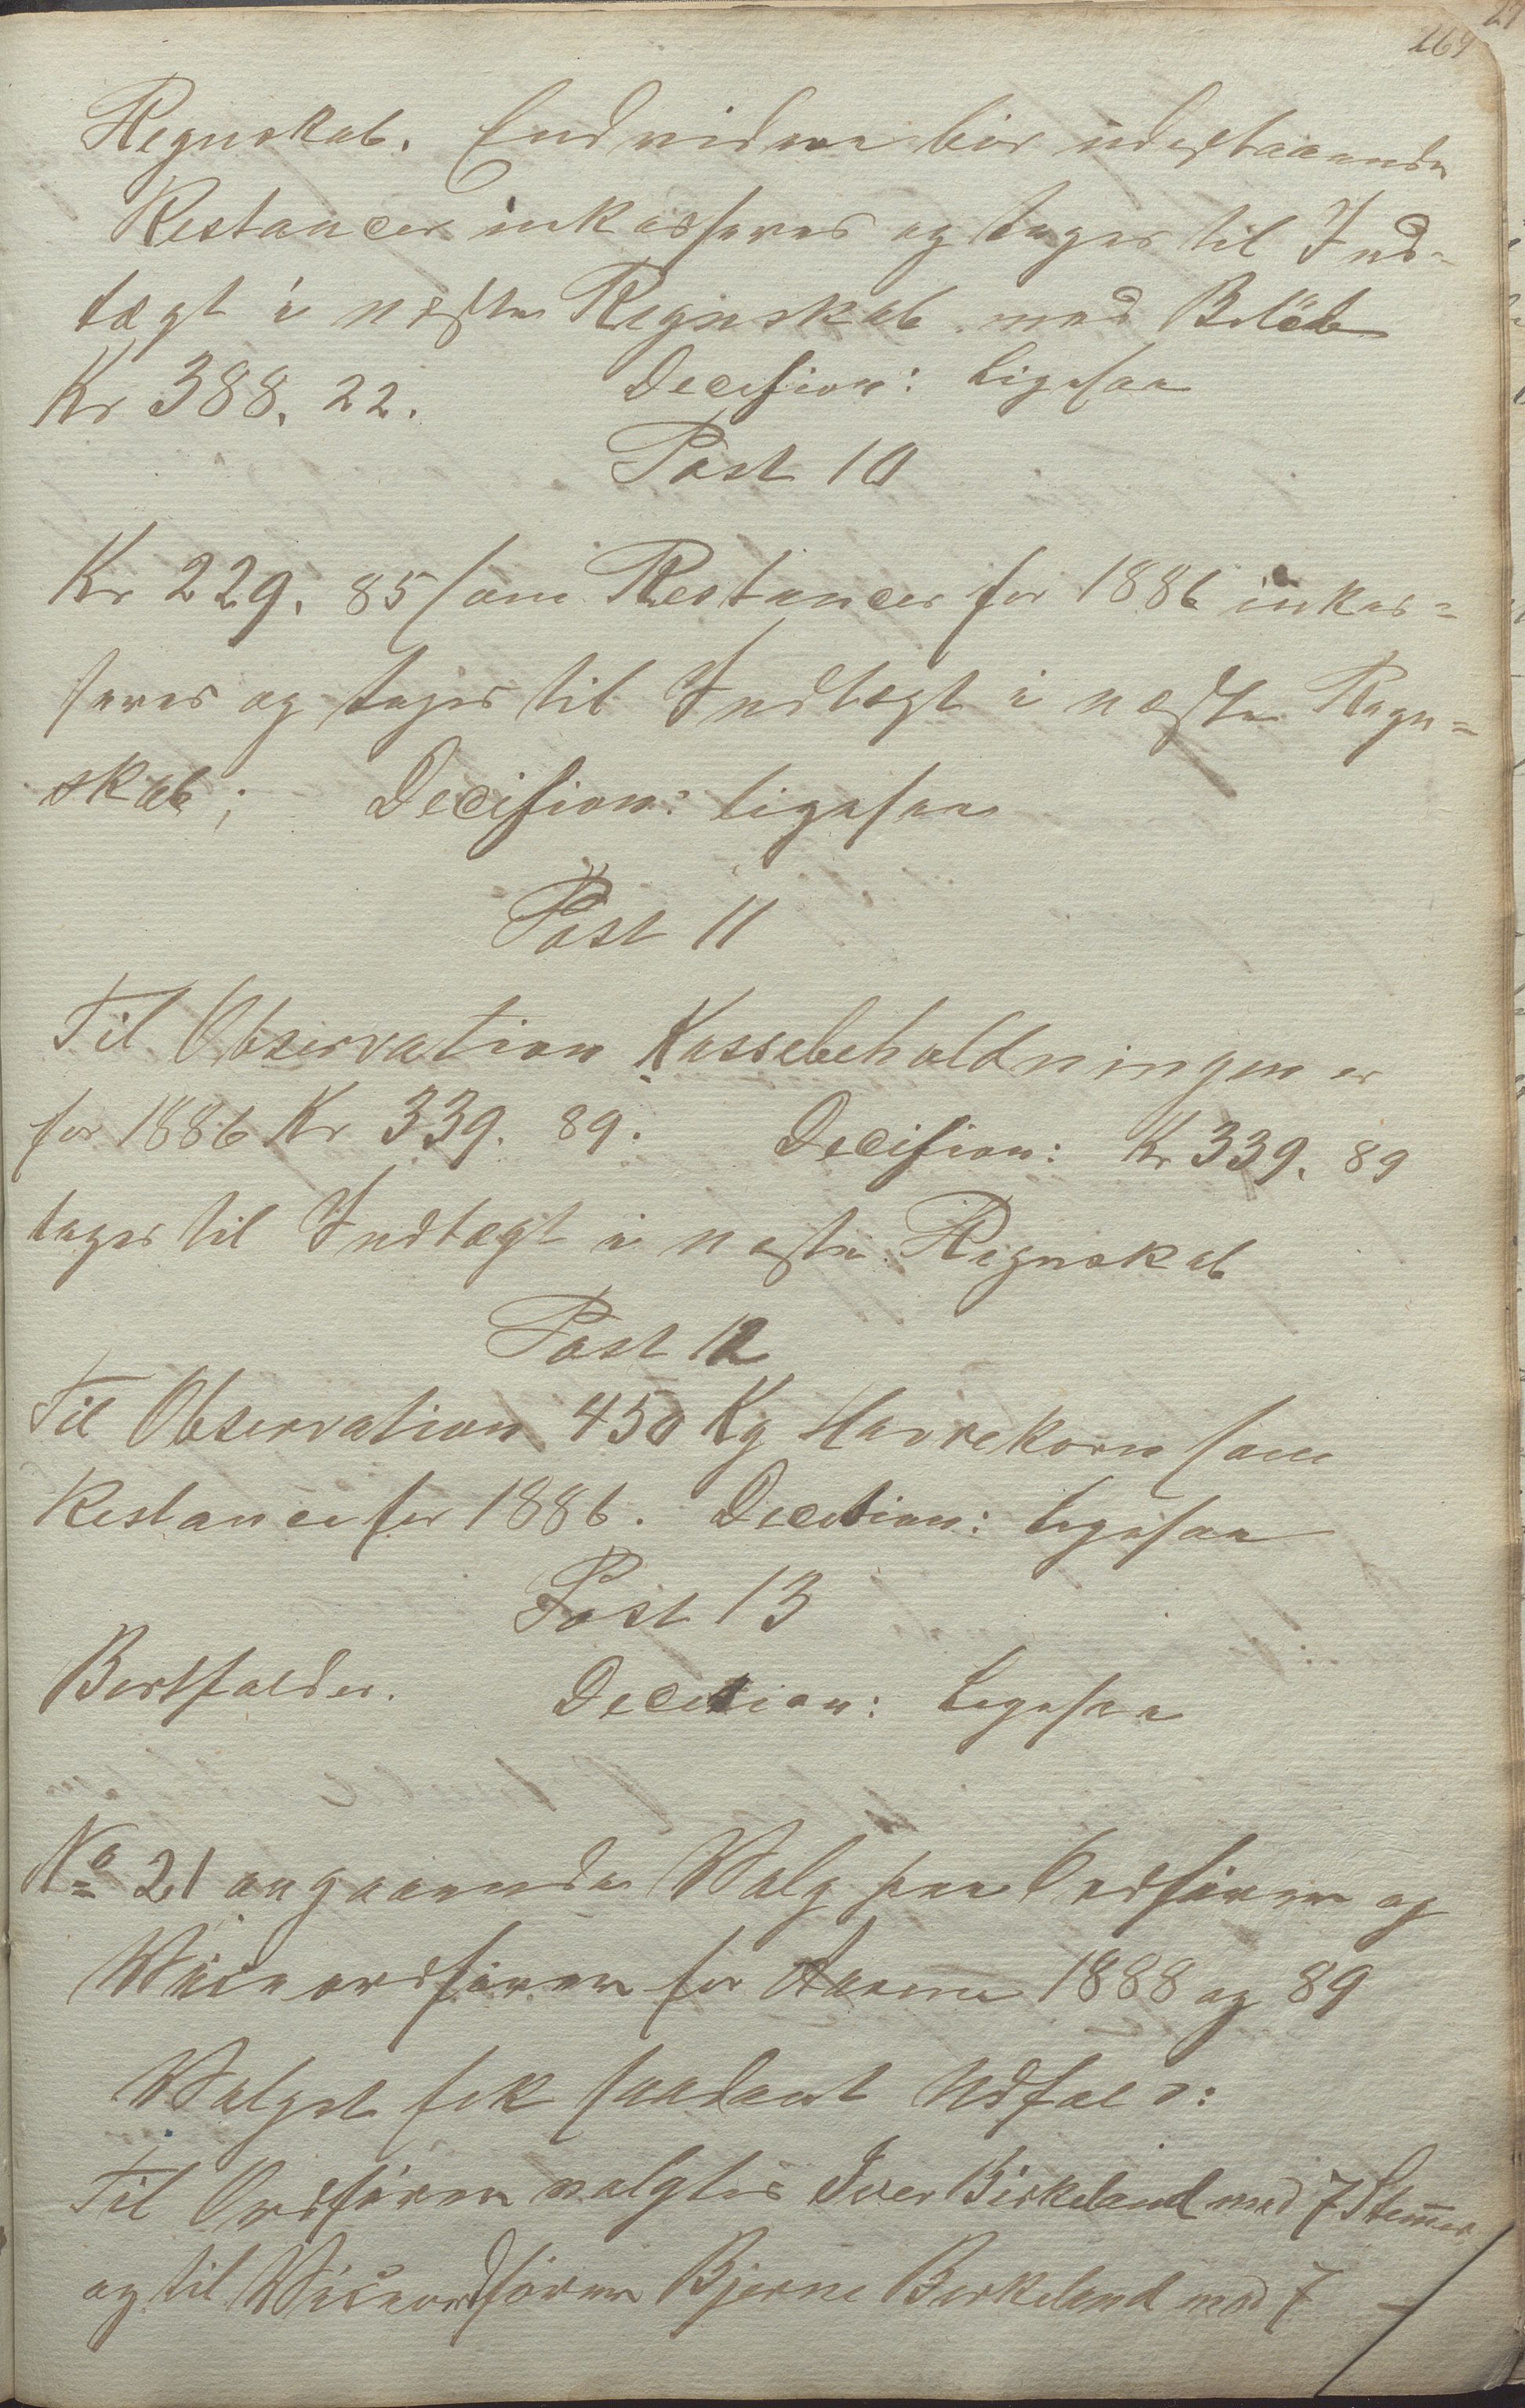 169
Regnskab. Endvidere bør udestaaende
Restancer inkasseres og tages til Ind-
tægt i næste Regnskab med Beløb
Kr 388. 22. Decision: Ligesaa
Post 10
Kr 229. 85 som Restancer for 1886 inkas=
seres og tages til Indtægt i næste Regn=
skab; Decision: Ligesaa
Post 11
Til Observation Kassebeholdningen er
for 1886 Kr 339. 89. Decision: Kr 339. 89
tages til Indtægt i næste Regnskab
Post 12
Til Observation 450 Kg Havrekorn som
Restance for 1886. Decision: Ligesaa
Post 13
Bortfalder. Decision: Ligesaa
No 21 angaaende Valg paa Ordfører og
Viceordfører for Aarene 1888 og 89
Valget fik saadant Udfald:
Til Ordfører valgtes Iver Birkeland med 7 Stemmer
og til Viceordfører Bjerne Berkeland med 7 —